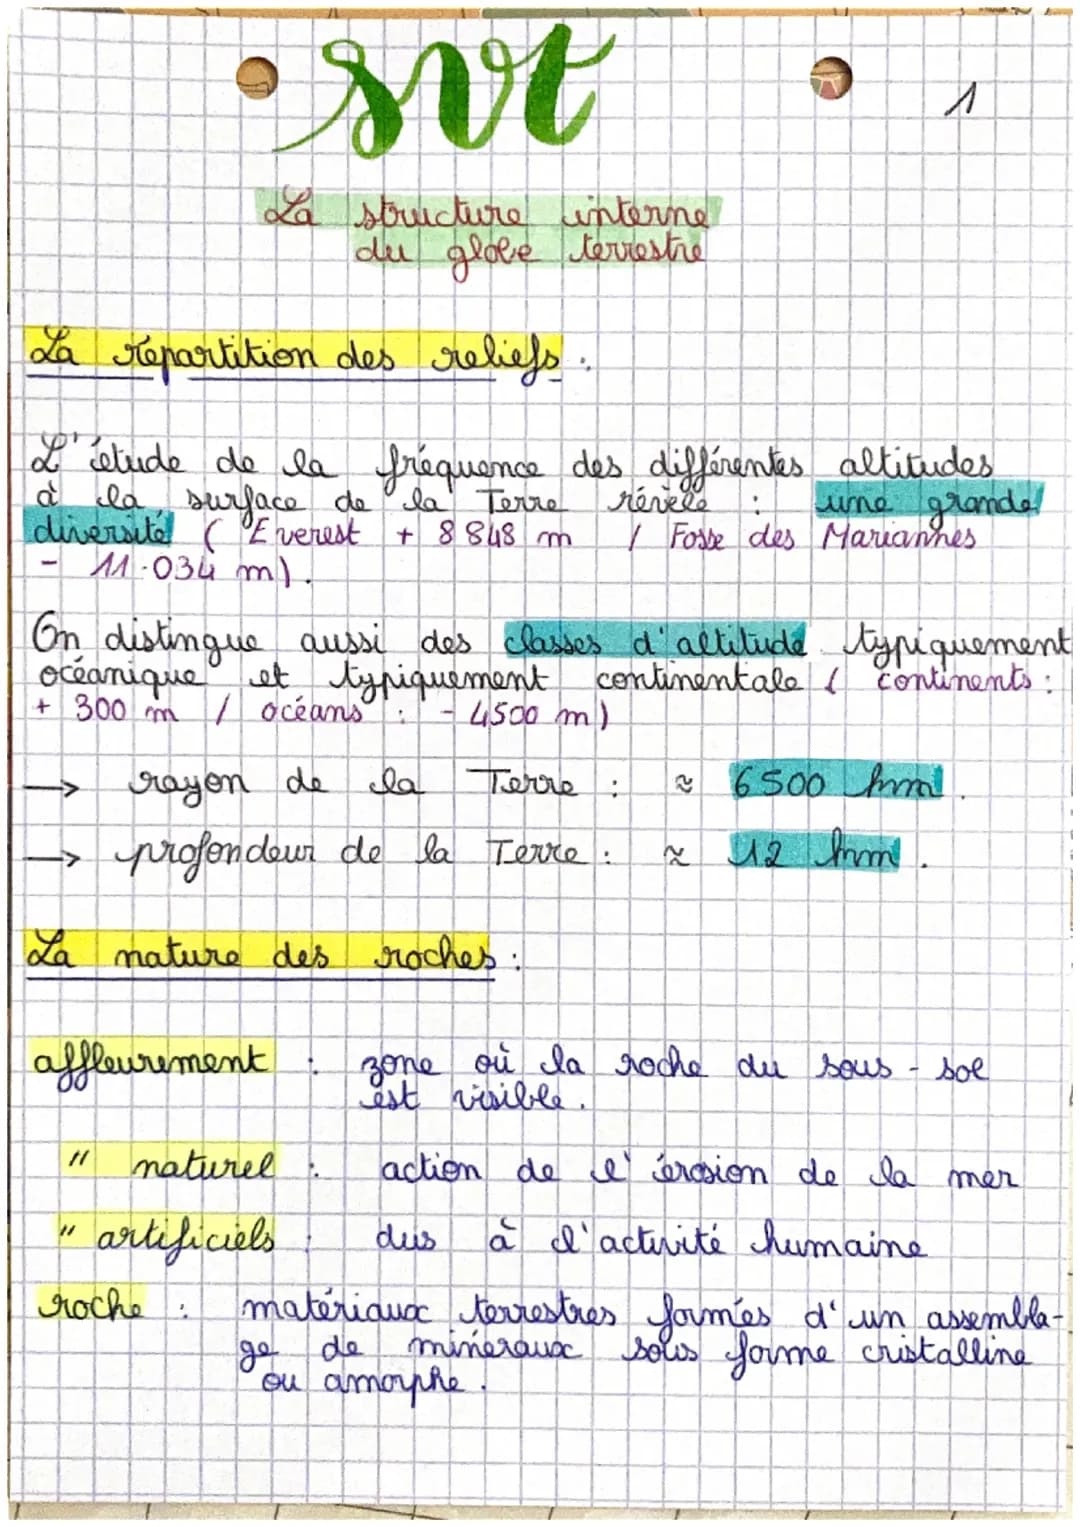 svt
1
La structure interne
du globe terrestre
La répartition des reliefs :
L'étude de la fréquence des différentes altitudes
à la surface de la Terre révèle : une grande
diversité ( Everest + 8 848 m / Fosse des Mariannes
- 11.034 m).
On distingue aussi des classes d'altitude typiquement
océanique et typiquement continentale ( continents :
+ 300 m / océans : - 4500 m)
→ rayon de la Terre : ≈ 6500 km.
→ profondeur de la Terre : ≈ 12 km.
La nature des roches :
affleurement : zone où la roche du sous-sol
est visible.
" naturel : action de l'érosion de la mer
" artificiels : dus à l'activité humaine
roche : matériaux terrestres formés d'un assembla-
ge de minéraux sous forme cristalline
ou amorphe.